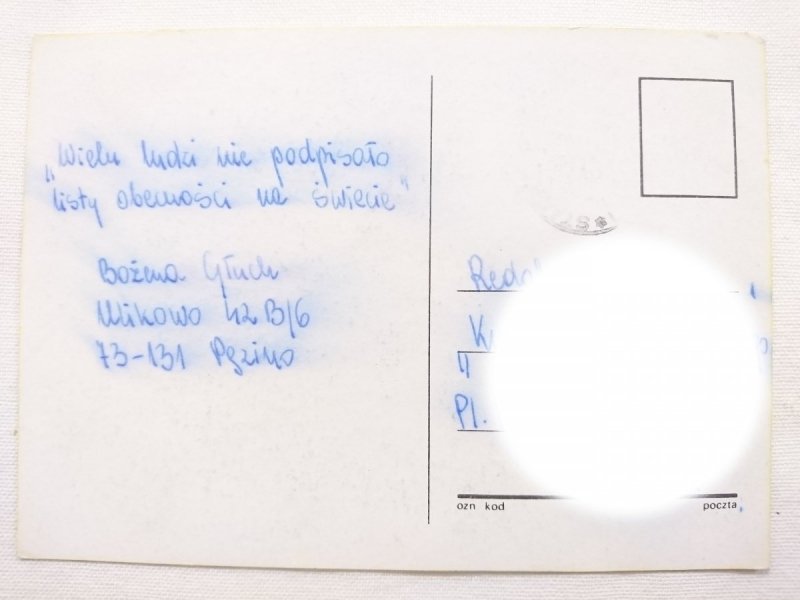 „Wielu ludzi nie podpisało
listy obecności na świecie"
Bożena Głuch
Ulikowo 42 B/6
73-131 Pęzino
Pl.
ozn kod
poczta